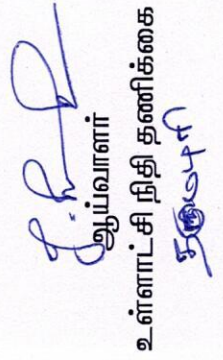 ஆய்வாளர்
உள்ளாட்சி நிதி தணிக்கை
தருமபுரி